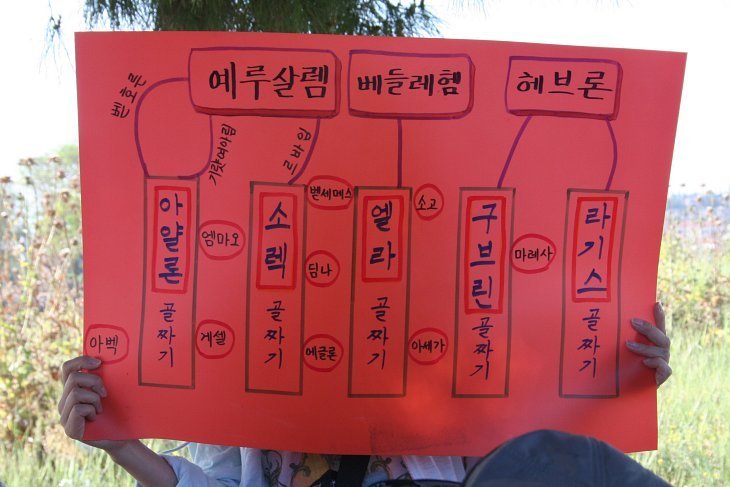 예루살렘
베들레헴
헤브론
벧호론
기럇여아림
르바임
아얄론 골짜기
소렉 골짜기
엘라 골짜기
구브린 골짜기
라기스 골짜기
벧세메스
소고
엠마오
딤나
마레사
아벡
게셀
에글론
아세가